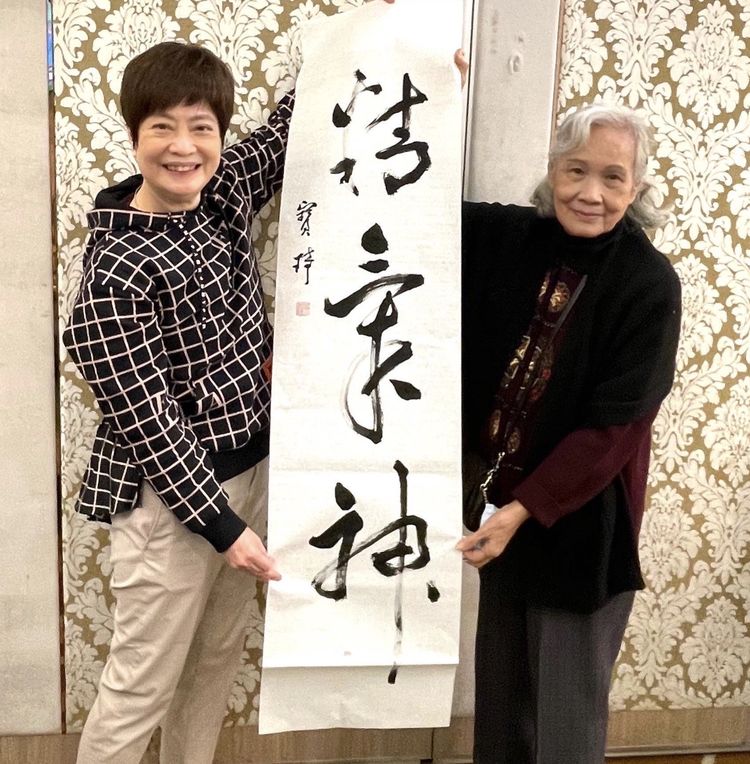 精氣神
寶持